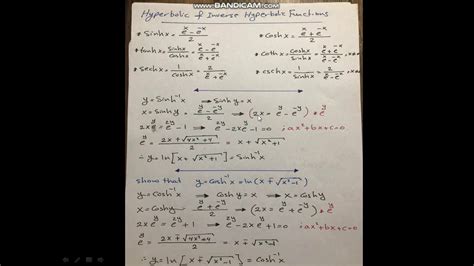 www.BANDICAM.com
Hyperbolic & Inverse Hyperbolic Functions
• Sinhx = (e^x − e^-x)/2 • Coshx = (e^x + e^-x)/2
• tanhx = Sinhx/coshx = (e^x − e^-x)/(e^x + e^-x) • Cothx = Coshx/Sinhx = (e^x + e^-x)/(e^x − e^-x), x≠0
• Sechx = 1/coshx = 2/(e^x + e^-x) • cschx = 1/Sinhx = 2/(e^x − e^-x), x≠0
y = Sinh^-1 x → sinhy = x
x = sinhy = (e^y − e^-y)/2 → (2x = e^y − e^-y) * e^y
2x e^y = e^2y − 1 → e^2y − 2x e^y − 1 = 0 ; ax²+bx+c=0
e^y = (2x + √(4x²+4))/2 = x + √(x²+1)
∴ y = ln[x + √(x²+1)] = Sinh^-1 x
show that y = Cosh^-1 x = ln(x ∓ √(x²−1))
y = Cosh^-1 x → Coshy = x → x = Coshy
x = Coshy = (e^y + e^-y)/2 → (2x = e^y + e^-y) * e^y
2x e^y = e^2y + 1 → e^2y − 2x e^y + 1 = 0 ; ax²+bx+c=0
e^y = (2x ∓ √(4x²−4))/2 = x ∓ √(x²−1)
∴ y = ln[x ∓ √(x²−1)] = Cosh^-1 x